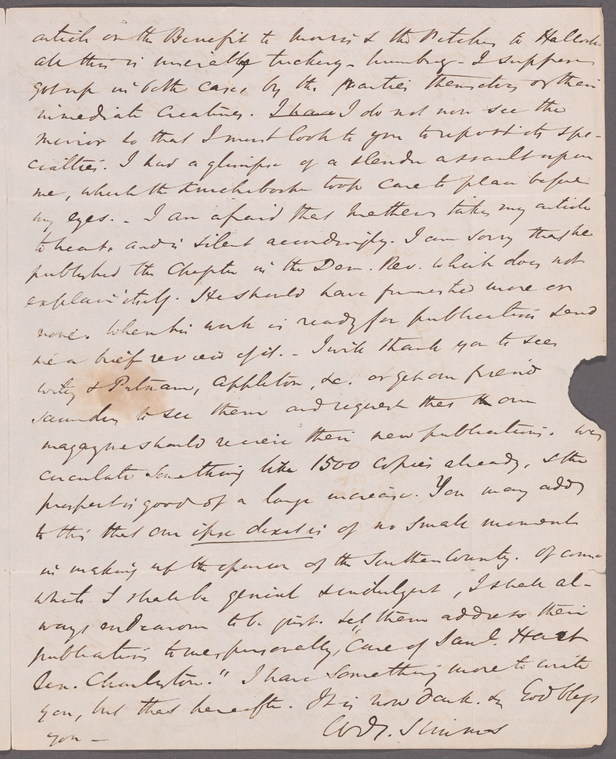 article on the Benefit to Morris & the Pitcher to Halleck
all this is miserable trickery - humbug - I suppose
got up in both cases by the parties themselves or their
immediate creatures. I have I do not now see the
Mirror so that I must look to you to report its spe-
cialties. I had a glimpse of a slender assault upon
me, which the Knickerbocker took care to place before
my eyes. - I am afraid that Mathews takes my article
to heart, and is silent accordingly. I am sorry that he
published the Chapter in the Dem. Rev. which does not
explain itself. He should have furnished more or
none. When his work is ready for publication send
me a brief review of it. - I will thank you to see
Wiley & Putnam, Appleton, &c. or get our friend
Saunders to see them and request that our
magazine should receive their new publications. We
circulate something like 1500 copies already, & the
prospect is good of a large increase. You may add
to this that our ipse dixit is of no small moment
in making up the opinion of the Southern Country. Of course
while I shall be genial & indulgent, I shall al-
ways endeavour to be just. Let them address their
publications to me personally, "Care of Saml. Hart
Sen. Charleston." I have something more to write
you, but that hereafter. It is now dark. & God bless
you - W. G. Simms